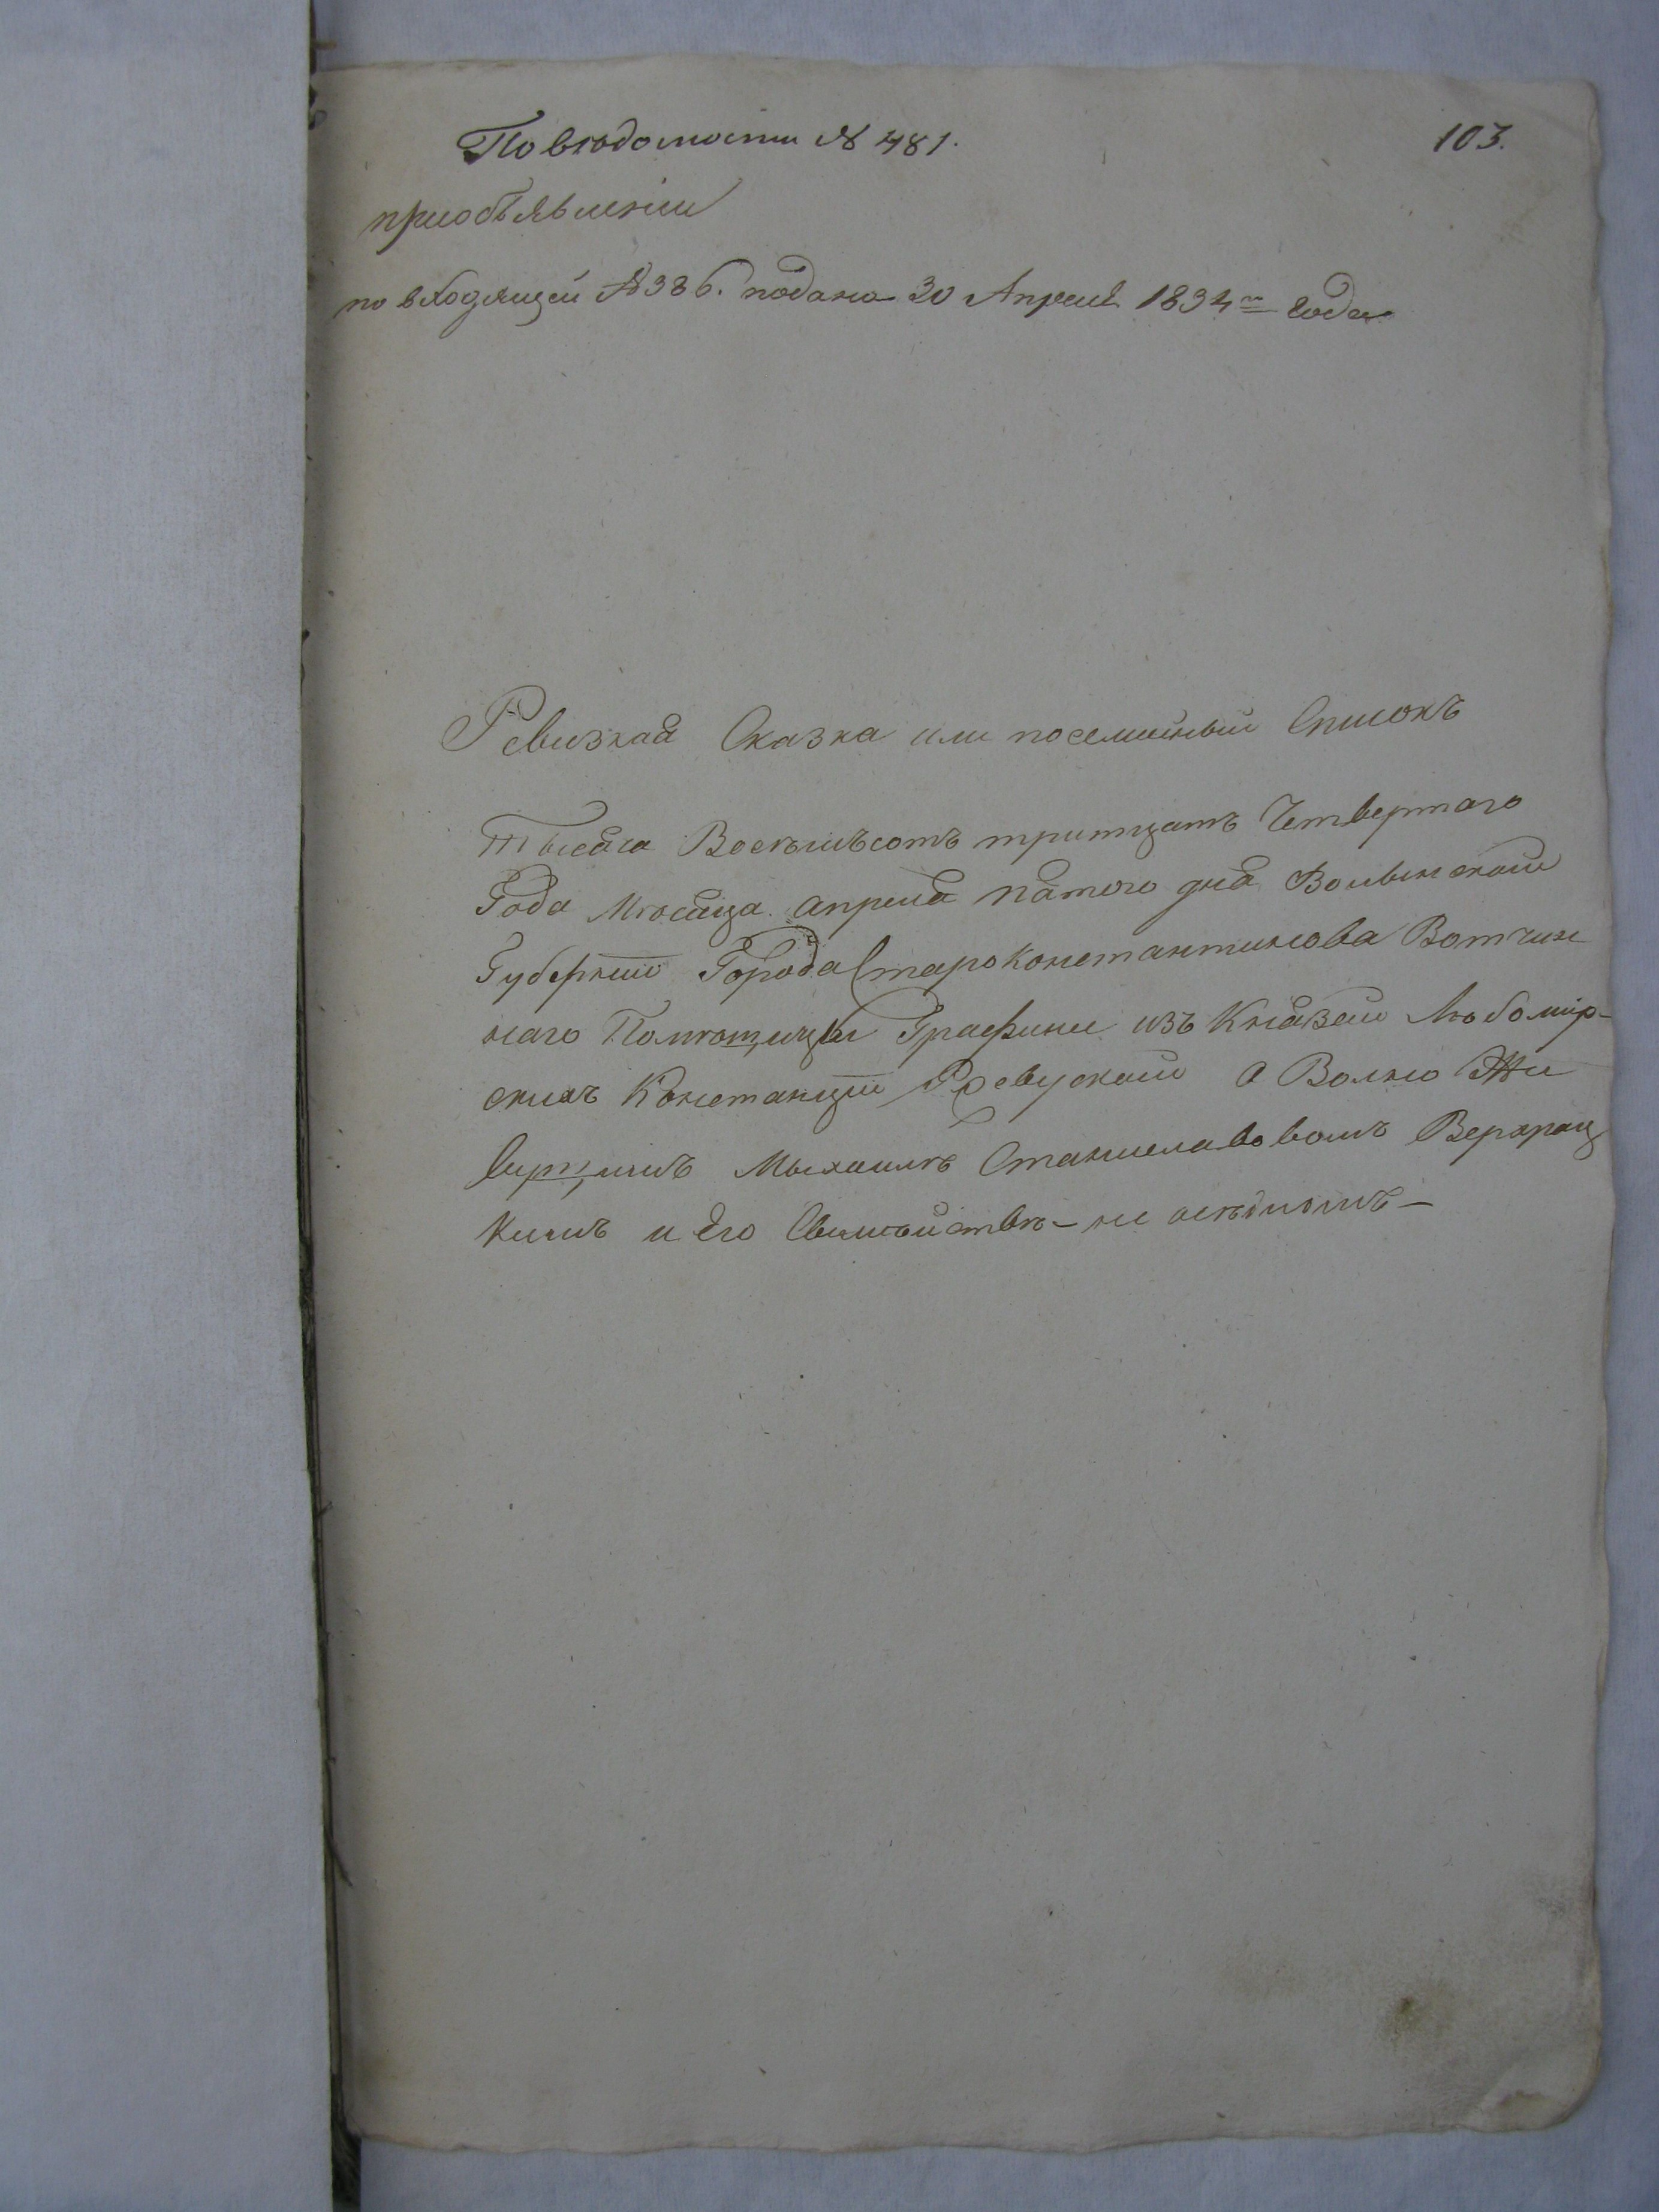 По вѣдомости № 481.
103.
при объявленіи
по входящей № 386. подана 30 Апреля 1834го года
Ревизкая Сказка или посемейный Списокъ
тысяча Восемьсотъ тритцать Четвертаго
Года Мѣсяца апреля пятого дня Волынской
Губернии Города Староконстантинова Вотчин
наго Помѣщицы Графини изъ Князей Любомир-
скихъ Констанции Ржевуской о Волно Жи
вущимъ Михаилѣ Станиславовомъ Верхрац
кимъ и его Свемѣйствѣ - не оседломъ -